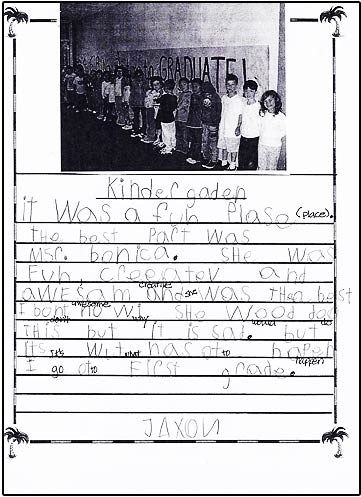 GRADUATE!
Kindergaden
it was a fun plase (place).
The best part was
msr. bonica. She was
Fun, creeatev and
creative
awesam and she was the best
awesome
I bont no wi she wood doo
don't why would do
This but it is sad. but
its it's wut what has ot to hapen
happen
I go ot to First grade.
JAXON